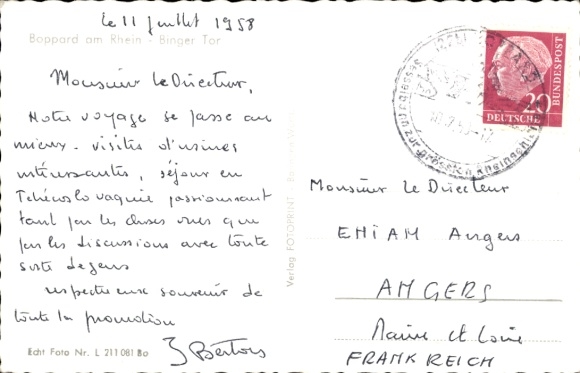 le 11 juillet 1958
Boppard am Rhein - Binger Tor
Monsieur le Directeur,
Notre voyage se passe au
mieux - visites d'usines
intéressantes, séjour en
Tchécoslovaquie passionnant
tant par les choses vues que
par les discussions avec toute
sorte de gens
respectueux souvenir de
toute la promotion
J Bertois
Echt Foto Nr. L 211 081 Bo
Verlag FOTOPRINT
20
DEUTSCHE
BUNDESPOST
Monsieur le Directeur
ENIAM Angers
ANGERS
Maine et Loire
FRANKREICH